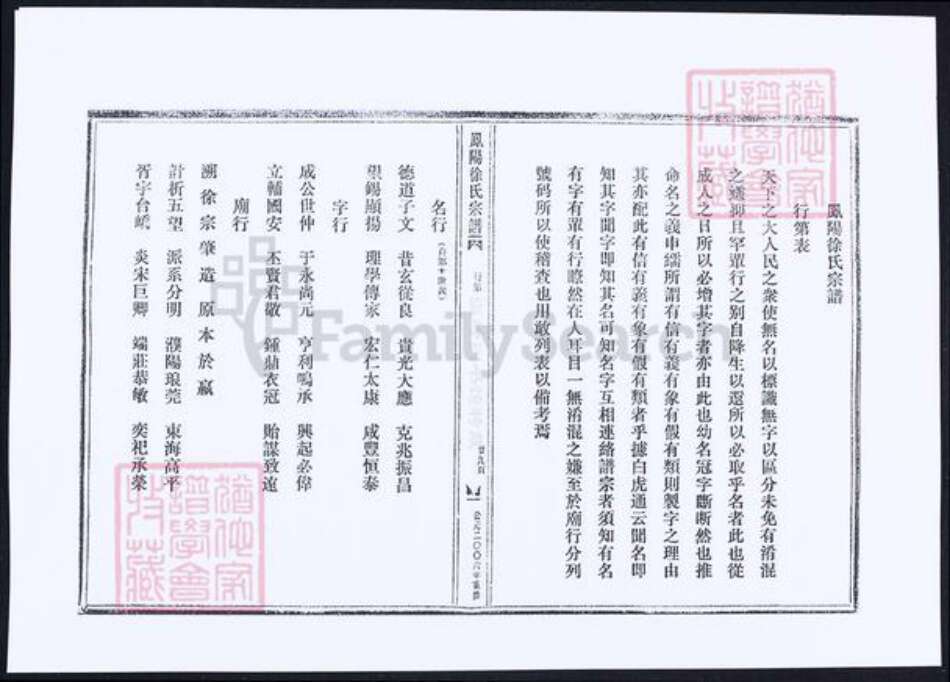 鳳陽徐氏宗譜
行第表
天下之大人民之衆使無名以標識無字以區分未免有淆混
之嫌抑且罕輩行之别自降生以還所以必取乎名者此也從
成人之日所以必增其字者亦由此也幼名冠字斷断然也推
命名之義申繻所謂有信有義有象有假有類則製字之理由
其亦配此有信有義有象有假有類者乎據白虎通云聞名即
知其字聞字即知其名可知名字互相連絡譜宗者須知有名
有字有輩有行瞭然在人耳目一無淆混之嫌至於廟行分列
號码所以使稽查也用敢列表以備考焉
鳳陽徐氏宗譜
行第
廿九頁
公元二〇〇六年
名行
德道子文 昔玄從良 貴光大應 克兆振昌
望錫顯揚 理學傳家 宏仁太康 咸豐恒泰
字行
成公世仲 于永尚元 亨利鳴承 興起必偉
立輔國安 丕賢君敬 鍾鼎衣冠 貽謀致遠
廟行
溯徐宗肇造 原本於嬴
計析五望 派系分明 濮陽琅莞 東海高平
胥宇台嶠 炎宋巨卿 端莊恭敏 奕祀承榮
FamilySearch
譜學會
收藏
譜學會
收藏